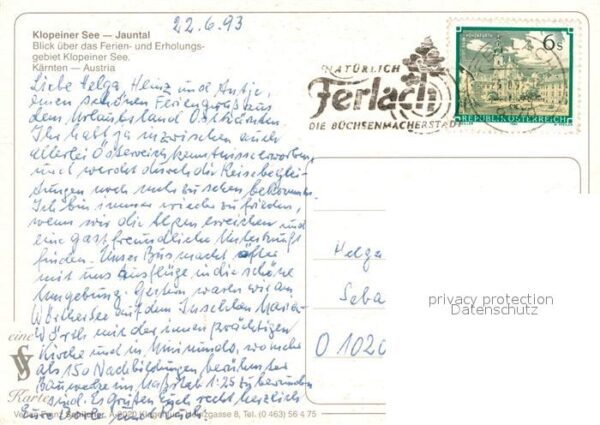 22.6.93
Klopeiner See — Jauntal
Blick über das Ferien- und Erholungs-
gebiet Klopeiner See.
Kärnten — Austria
Liebe Helga, Heinz und Antje,
einen schönen Feriengruß aus
dem Urlaubsland Ostkärnten.
Ihr habt ja inzwischen auch
allerlei Österreichkenntnisse erworben
und werdet durch die Reisebeglei-
tungen noch mehr zu sehen bekommen.
Ich bin immer wieder zufrieden,
wenn wir die Alpen erreichen und
eine gastfreundliche Unterkunft
finden. Unser Bus macht öfter
mit uns Ausflüge in die schöne
Umgebung. Gestern waren wir am
Wörthersee auf dem Inselchen Maria-
Wörth mit der prächtigen
Kirche und in Minimundo, wo mehr
als 150 Nachbildungen berühmter
Bauwerke im Maßstab 1:25 zu bewundern
sind. Es grüßen Euch recht herzlich
Eure
NATÜRLICH
Ferlach
DIE BÜCHSENMACHERSTADT
6 S
REPUBLIK ÖSTERREICH
Helga
Seba
O 1020
privacy protection
Datenschutz
eine
Karte